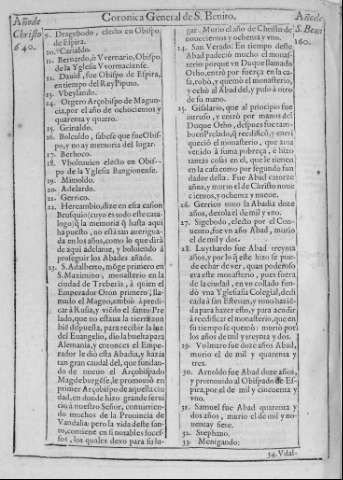 Coronica General de S. Benito.
Año de
Christo
640.
Año de
S. Benit
160.
9. Dragobodo, electo en Obispo
de Espira.
10. Carialdo.
11. Bernardo, ò Vvernario, Obispo
de la Yglesia Vvormaciense.
12. Dauid, fue Obispo de Espira,
en tiempo del Rey Pipino.
13. Vbeylando.
14. Orgero Arçobispo de Magun-
cia, por el año de ochocientos y
quarenta y quatro.
15. Grinaldo.
16. Bolculdo, sabese que fue Obis-
po, y no ay memoria del lugar.
17. Berhoco.
18. Vbolstucion electo en Obis-
po de la Yglesia Bangionense.
19. Mimoldo.
20. Adelardo.
21. Gerrico.
22. Hercambio, dize en esta caçion
Brusquio (cuyo es todo este cata-
logo) q̃ la memoria q̃ hasta aqui
ha puesto, no està tan aueriguа-
da en los años, como lo que dirà
de aqui adelante, y boluiendo à
proseguir los Abades añade.
23. S. Adalberto, môge primero en
S. Maximino, monasterio en la
ciudad de Treberis, à quien el
Emperador Oton primero, lla-
mado el Magno, embiò à predi-
car à Rusia, y viẽdo el santo Pre-
lado, que no estaua la tierra tan
biẽ dispuesta, para recibir la luz
del Euangelio, dio la buelta para
Alemania, y entonces el Empera-
dor le diò esta Abadia, y hazia
tan gran caudal del, que fundan-
do de nueuo el Arçobispado
Magdeburgẽse, le promouiò en
primer Arçobispo de aquella ciu
dad, en donde hizo grande serui
cio à nuestro Señor, conuirtiendo
mucho de la Prouincia de
Vandalia: pero la vida deste san-
to, contiene en si notables suces-
sos, los quales dexo para su lu-
gar. Murio el año de Christo de
nouecientos y ochenta y vno.
24. San Verado. En tiempo deste
Abad padecio mucho el monas-
terio, porque vn Duque llamado
Otho, entrò por fuerça en la ca-
sa, robò, y quemò el monasterio,
y echò al Abad del, y passò à otro
de su mano.
25. Gisilario, que al principio fue
intruso, y entrò por manos del
Duque Otho, despues fue tam-
bien Prelado, q̃ reedificò, y enri-
queciò el monasterio, que auia
venido à suma pobreza, è hizo
tantas cosas en el, que le tienen
en la casa como por segundo fun
dador della. Fue Abad catorze
años, y murio el de Christo noue
cientos, y ochenta y nueue.
26. Gerrico tuuo la Abadia doze
años, detrola el de mil y vno.
27. Sigebodo, electo por el Con-
uento, fue vn año Abad, murio
el de mil y dos.
28. Luythardo fue Abad treynta
años, y por lo q̃ este hizo se pue-
de echar de ver, quan poderoso
era este monasterio, pues fuera
de la ciudad, en vn collado fun-
dò vna Yglesia Colegial, dedi
cada à san Esteuan, y tuuo hazien-
da para hazer esto, y para acudir
à reedificar el monasterio, que en
su tiempo se quemò: murio por
los años de mil y treynta y dos.
29. Volmaro fue doze años Abad,
murio el de mil y quarenta y
tres.
30. Arnoldo fue Abad doze años,
y promouido al Obispado de Es-
pira, por el de mil y cincuenta y
vno.
31. Samuel fue Abad quarenta y
dos años, murio el de mil y no-
uenta y siete.
32. Stephano.
33. Menigando.
34. Vdal-